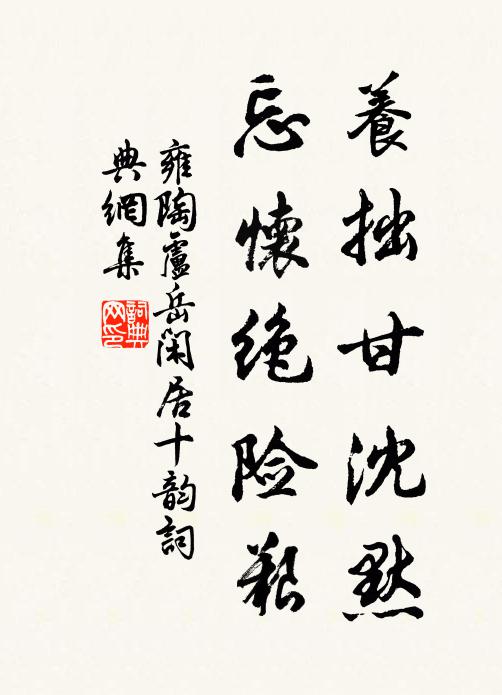 養拙甘沈默
忘懷绝险艱
雍陶廬岳闲居十韵詞
典網集
詞典网印